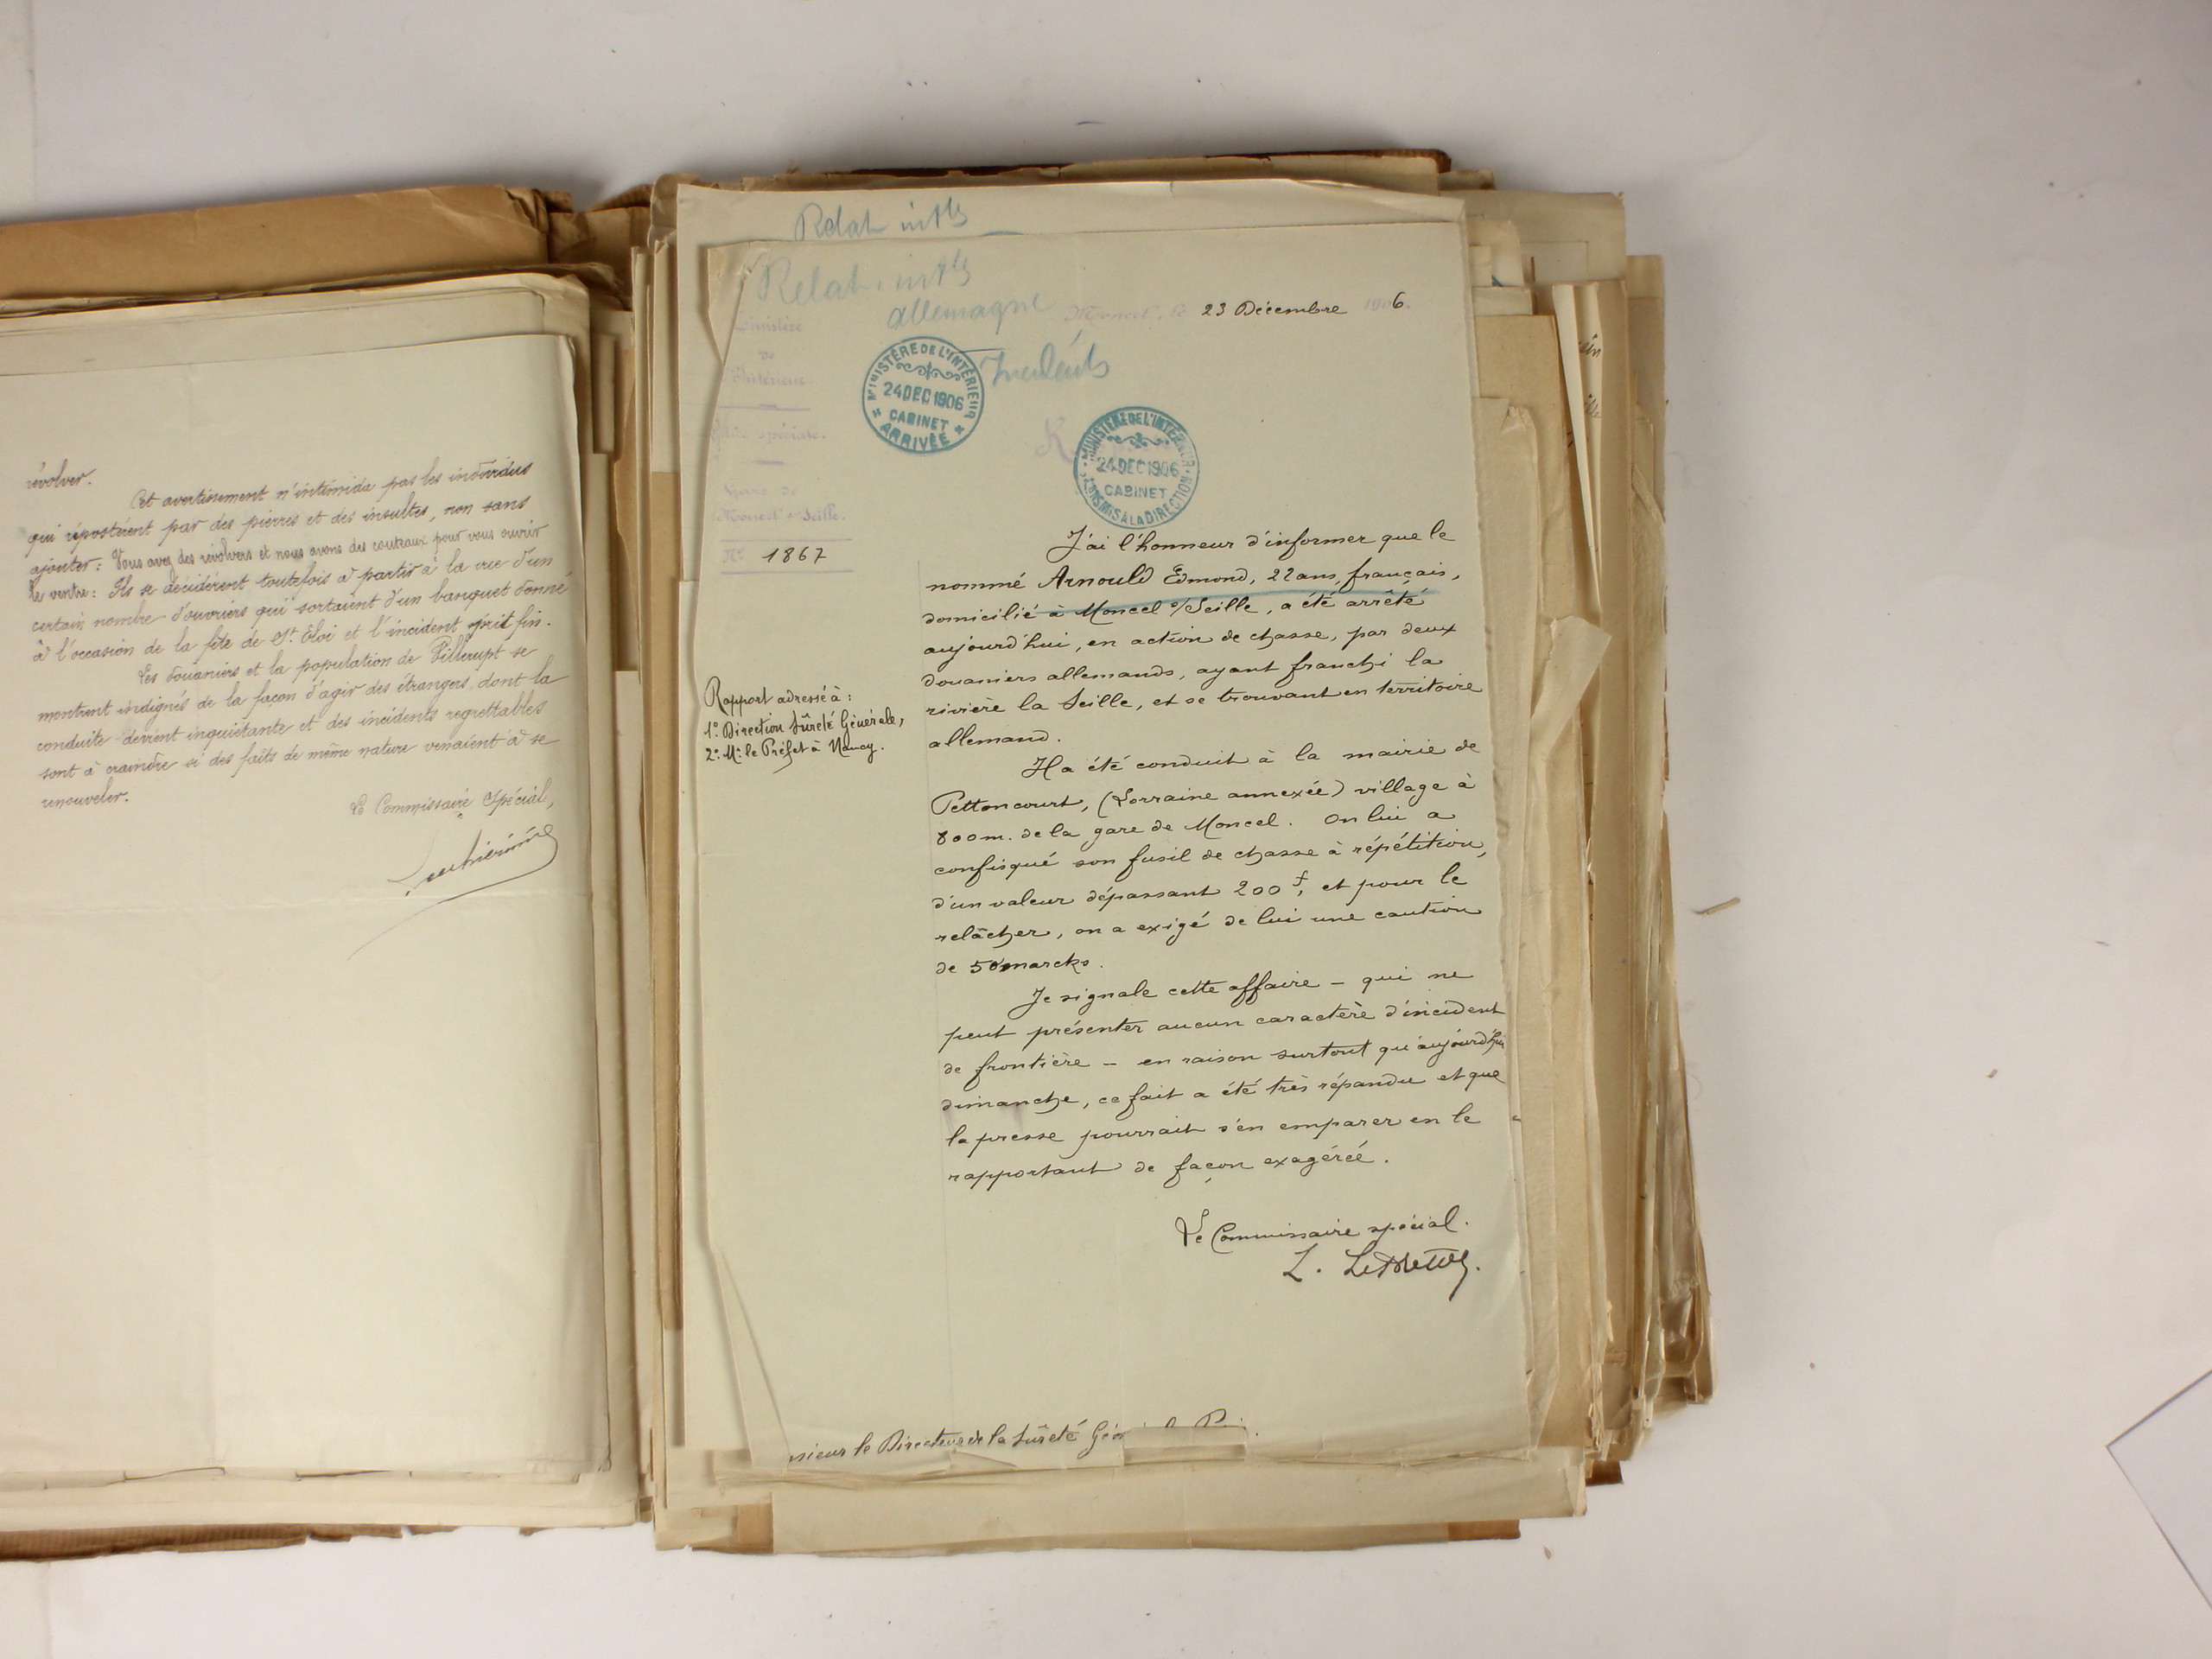 révolver.
Cet avertissement n'intimida pas les individus
qui ripostèrent par des pierres et des insultes, non sans
ajouter : Vous avez des révolvers et nous avons des couteaux pour vous ouvrir
le ventre : Ils se décidèrent toutefois à partir à la vue d'un
certain nombre d'ouvriers qui sortaient d'un banquet donné
à l'occasion de la fête de St. Eloi et l'incident prit fin.
Les douaniers et la population de Villerupt se
montrent indignés de la façon d'agir des étrangers dont la
conduite devient inquiétante et des incidents regrettables
sont à craindre si des faits de même nature venaient à se
renouveler.
Le Commissaire Spécial,
Relat intles
Relat. intles
allemagne
Incidents
Moncel, le 23 Décembre 1906.
Ministère
de
l'Intérieur
MINISTÈRE DE L'INTÉRIEUR
24 DEC 1906
CABINET
ARRIVÉE
Police spéciale.
MINISTÈRE DE L'INTÉRIEUR
24 DEC 1906
CABINET
TRANSMIS A LA DIRECTION
Gare de
Moncel s/Seille.
No 1867
J'ai l'honneur d'informer que le
nommé Arnould Edmond, 22 ans, français,
domicilié à Moncel s/Seille, a été arrêté
aujourd'hui, en action de chasse, par deux
douaniers allemands, ayant franchi la
rivière la Seille, et se trouvant en territoire
allemand.
Rapport adressé à :
1º Direction Sûreté Générale,
2º Mr. le Préfet à Nancy.
Il a été conduit à la mairie de
Pettoncourt, (Lorraine annexée) village à
800 m. de la gare de Moncel. On lui a
confisqué son fusil de chasse à répétition,
d'un valeur dépassant 200 f, et pour le
relâcher, on a exigé de lui une caution
de 50 marcks.
Je signale cette affaire – qui ne
peut présenter aucun caractère d'incident
de frontière – en raison surtout qu'aujourd'hui
dimanche, ce fait a été très répandu et que
la presse pourrait s'en emparer en le
rapportant de façon exagérée.
Le Commissaire spécial.
nsieur le Directeur de la Sûreté Gén